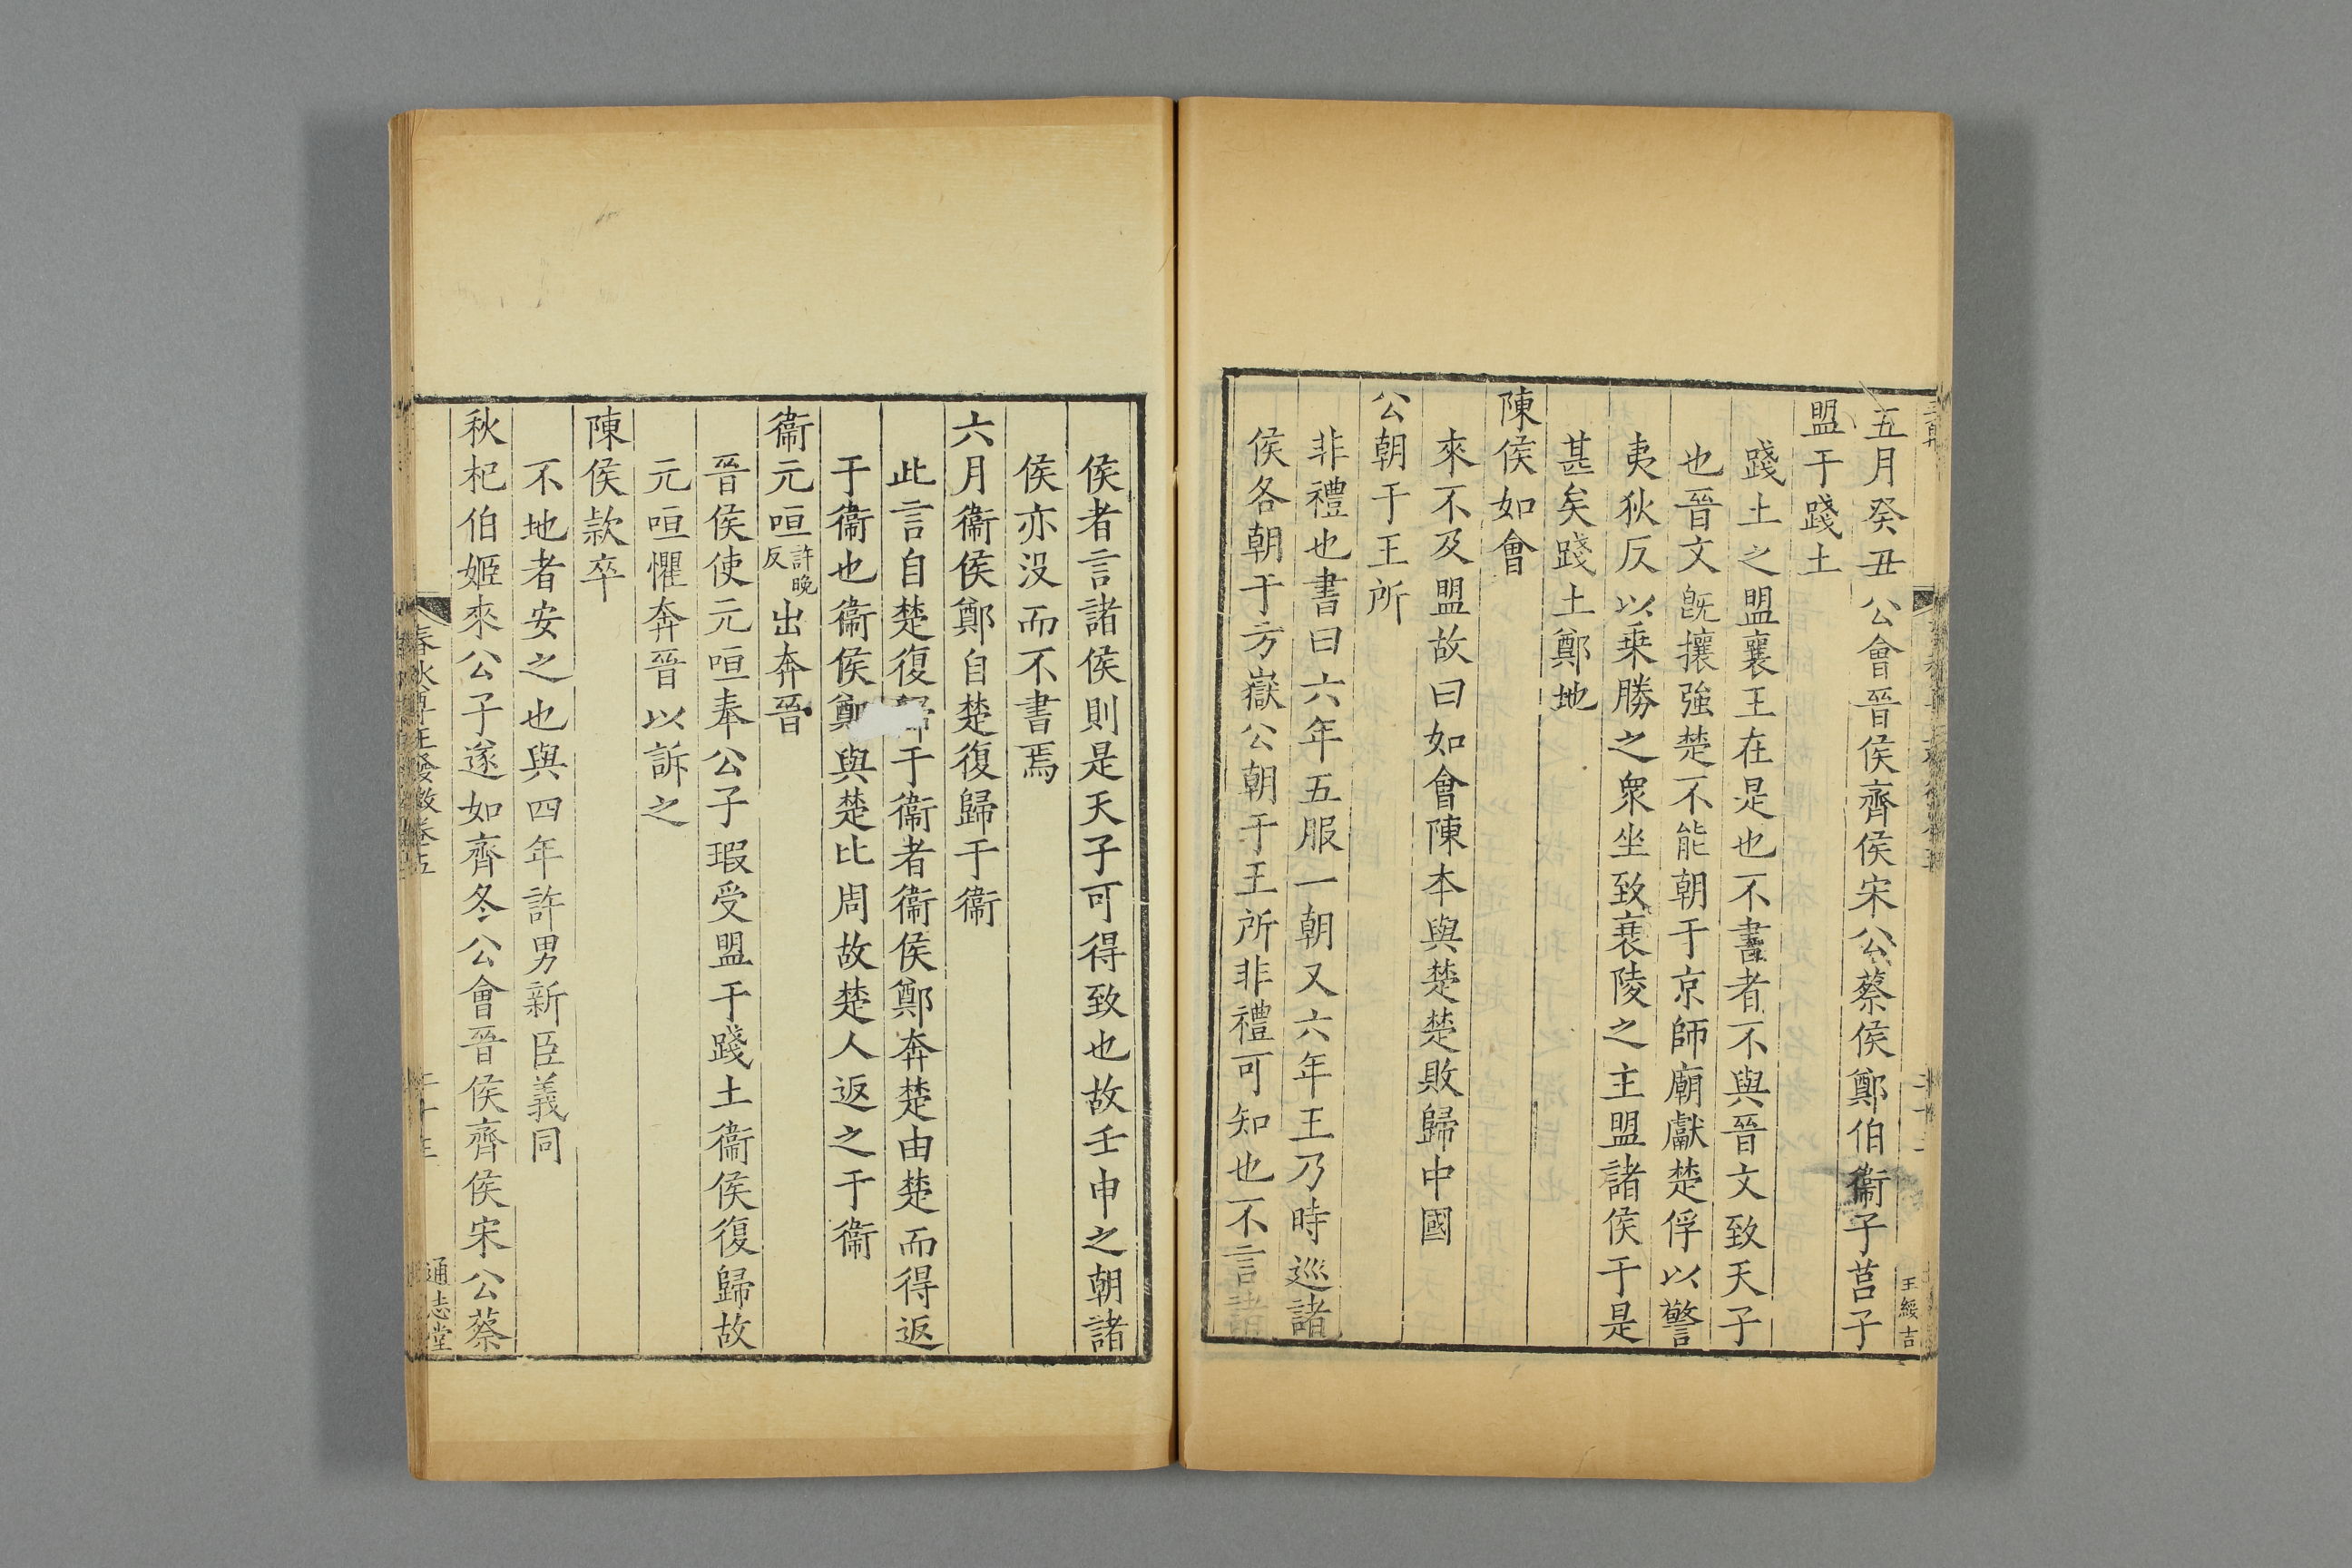 五月癸丑公會晉侯齊侯宋公蔡侯鄭伯衞子莒子
盟于踐土
踐土之盟襄王在是也不書者不與晉文致天子
也晉文旣攘強楚不能朝于京師廟獻楚俘以警
夷狄仄以乗勝之衆坐致衰陵之主盟諸侯于是
甚矣踐土鄭地
陳侯如會
來不及盟故曰如會陳本與楚楚敗歸中國
公朝于王所
非禮也書曰六年五服一朝又六年王乃時巡諸
侯各朝于方嶽公朝于王所非禮可知也不言諸
王綏吉
侯者言諸侯則是天子可得致也故壬申之朝諸
侯亦没而不書焉
六月衞侯鄭自楚復歸于衞
此言自楚復歸于衞者衞侯鄭奔楚由楚而得返
于衞也衞侯鄭與楚比周故楚人返之于衞
衞元咺許晚反出奔晉
晉侯使元咺奉公子瑕受盟于踐土衞侯復歸故
元咺懼奔晉以訴之
陳侯款卒
不地者安之也與四年許男新臣義同
秋杞伯姬來公子遂如齊冬公會晉侯齊侯宋公蔡
春秋尊王發微卷五
通志堂